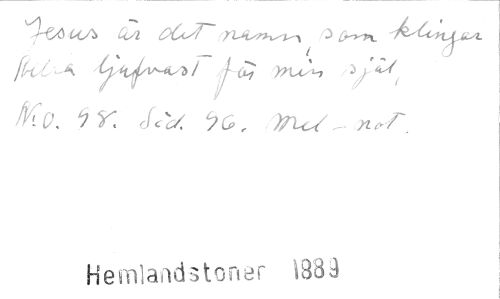 Jesus är det namn, som klingar
Allra ljufvast för min själ,
N:o. 98. Sid. 96. Mel-not.
Hemlandstoner 1889